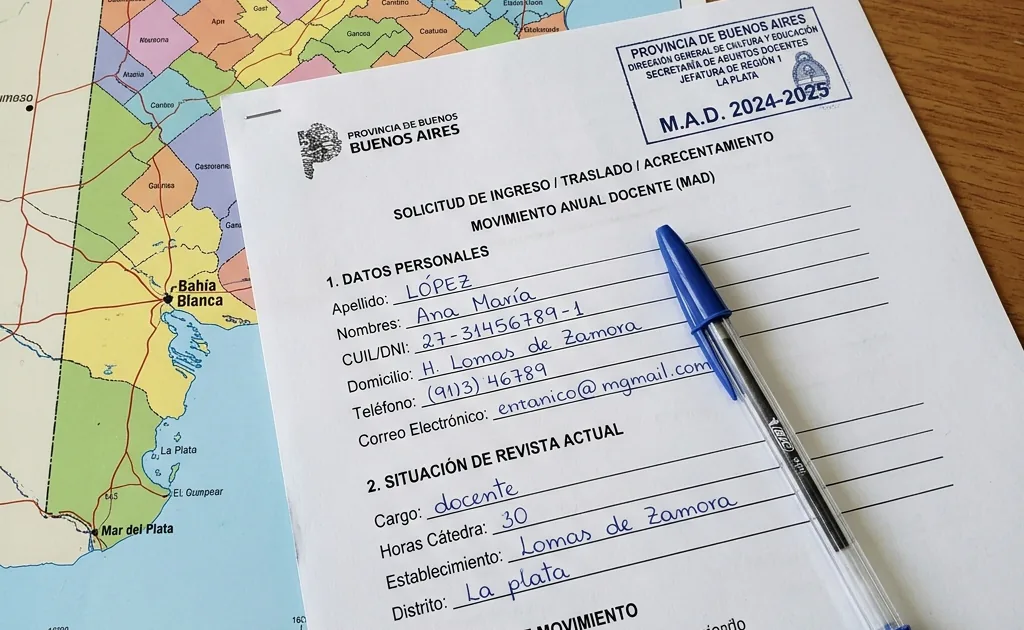 PROVINCIA DE BUENOS AIRES
DIRECCIÓN GENERAL DE CULTURA Y EDUCACIÓN
SECRETARÍA DE ABUNTOS DOCENTES
JEFATURA DE REGIÓN 1
LA PLATA
M.A.D. 2024-2025
PROVINCIA DE BUENOS
BUENOS AIRES
SOLICITUD DE INGRESO / TRASLADO / ACRECENTAMIENTO
MOVIMIENTO ANUAL DOCENTE (MAD)
1. DATOS PERSONALES
Apellido: LÓPEZ
Nombres: Ana María
CUIL/DNI: 27-31456789-1
Domicilio: H. Lomas de Zamora
Teléfono: (911)3) 46789
Correo Electrónico: entanico@mgmail.com
2. SITUACIÓN DE REVISTA ACTUAL
Cargo: docente
Horas Cátedra: 30
Establecimiento: Lomas de Zamora
Distrito: La plata
MOVIMIENTO
Gancea
Bahía
Blanca
La Plata
EL Gumpear
Mar del Plata